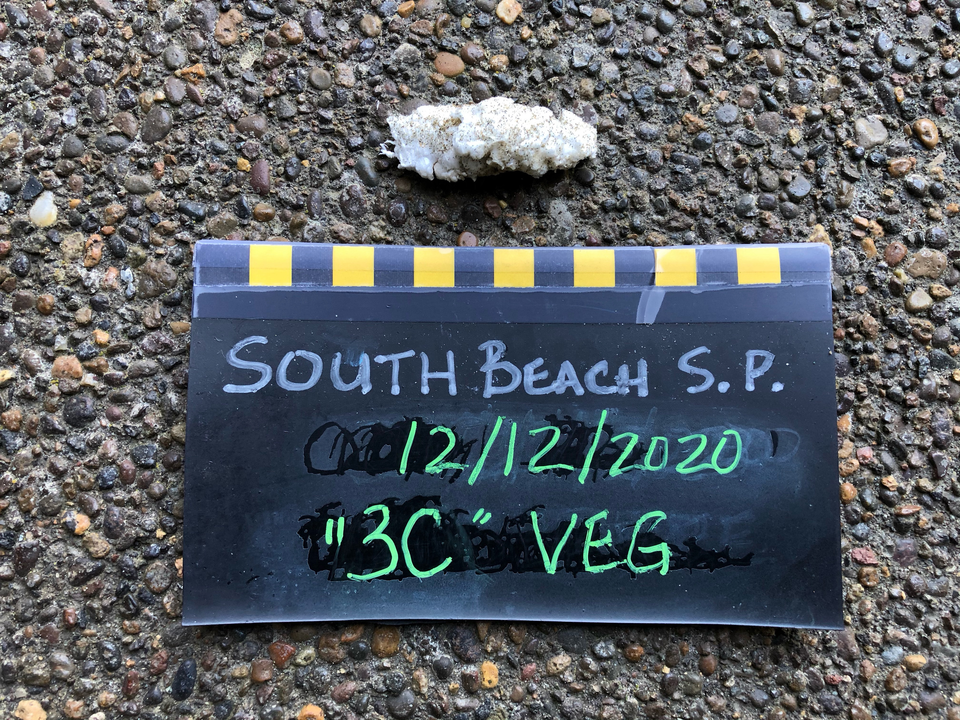 SOUTH BEACH S.P.
12/12/2020
"3C" VEG